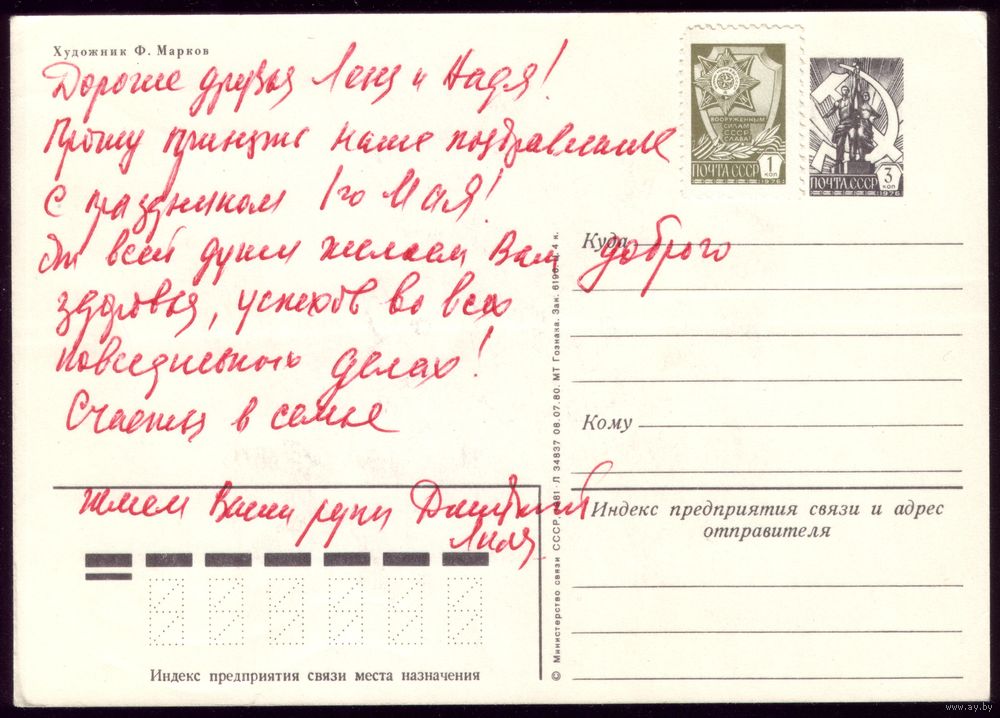 Художник Ф. Марков
Дорогие друзья Леня и Надя!
Прошу принять наше поздравление
с праздником 1го Мая!
От всей души желаем Вам доброго
здоровья, успехов во всех
повседневных делах!
Счастья в семье
Жмем Ваши руки Дмитрий
Лиля
ВООРУЖЕННЫМ
СИЛАМ
СССР
СЛАВА!
ПОЧТА СССР
1
КОП
1976
ПОЧТА СССР
3
КОП
1976
Куда
Кому
Индекс предприятия связи и адрес
отправителя
Индекс предприятия связи места назначения
© Министерство связи СССР, 1981 Л 34837 08.07.80. МТ Гознака. Зак. 6196. Ц. 4 к.
www.ay.by